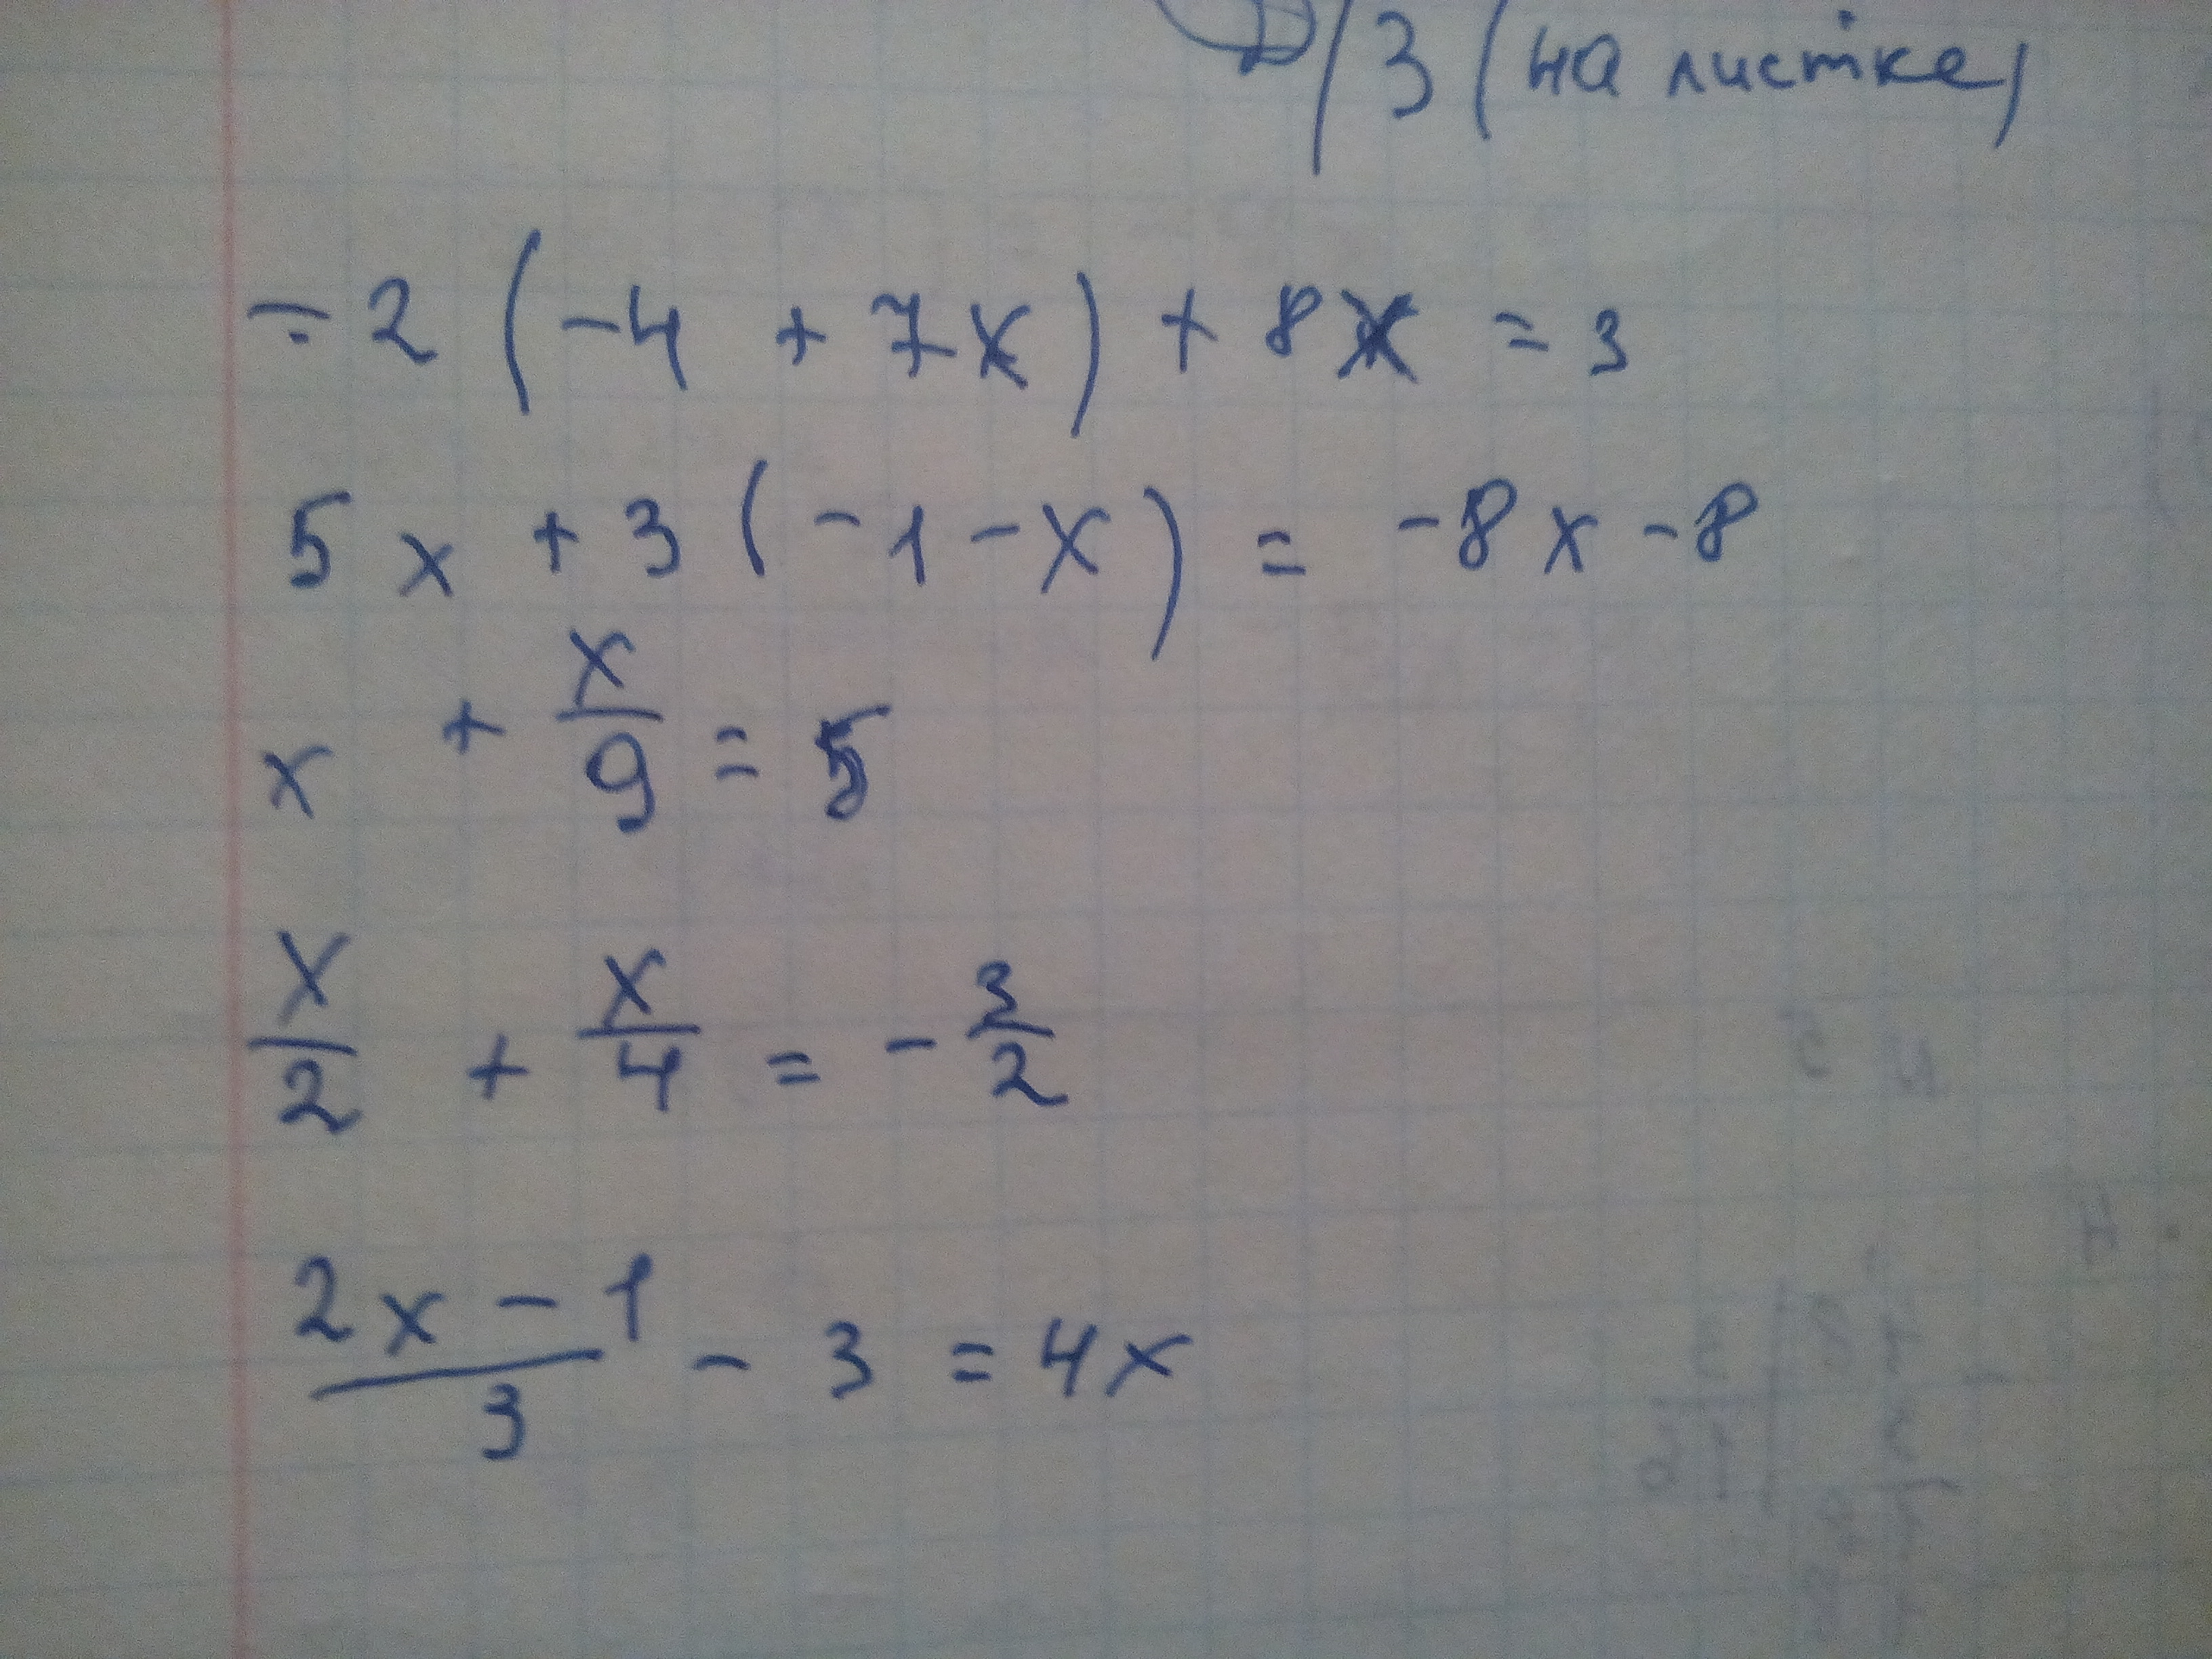 D/З (на листке)
-2 (-4 + 7x) + 8x = 3
5x + 3 (-1 - x) = -8x - 8
x + x/9 = 5
x/2 + x/4 = - 3/2
2x - 1/3 - 3 = 4x